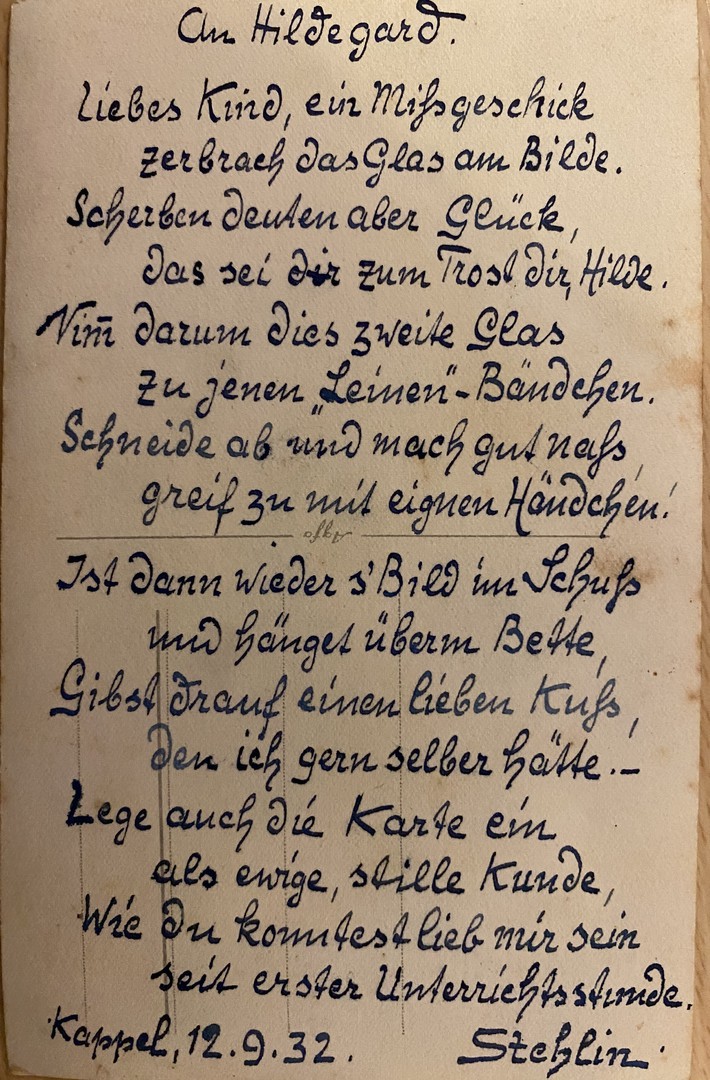 An Hildegard.
Liebes Kind, ein Mißgeschick
zerbrach das Glas am Bilde.
Scherben deuten aber Glück,
das sei dir zum Trost dir, Hilde.
Nim̅ darum dies zweite Glas
zu jenen „Leinen"-Bändchen.
Schneide ab und mach gut naß,
greif zu mit eignen Händchen!
Ist dann wieder s'Bild im Schuß
und hänget überm Bette,
Gibst drauf einen lieben Kuß,
den ich gern selber hätte.–
Lege auch die Karte ein
als ewige, stille Kunde,
Wie du konntest lieb mir sein
seit erster Unterrichtsstunde.
Kappel, 12.9.32. Stehlin.